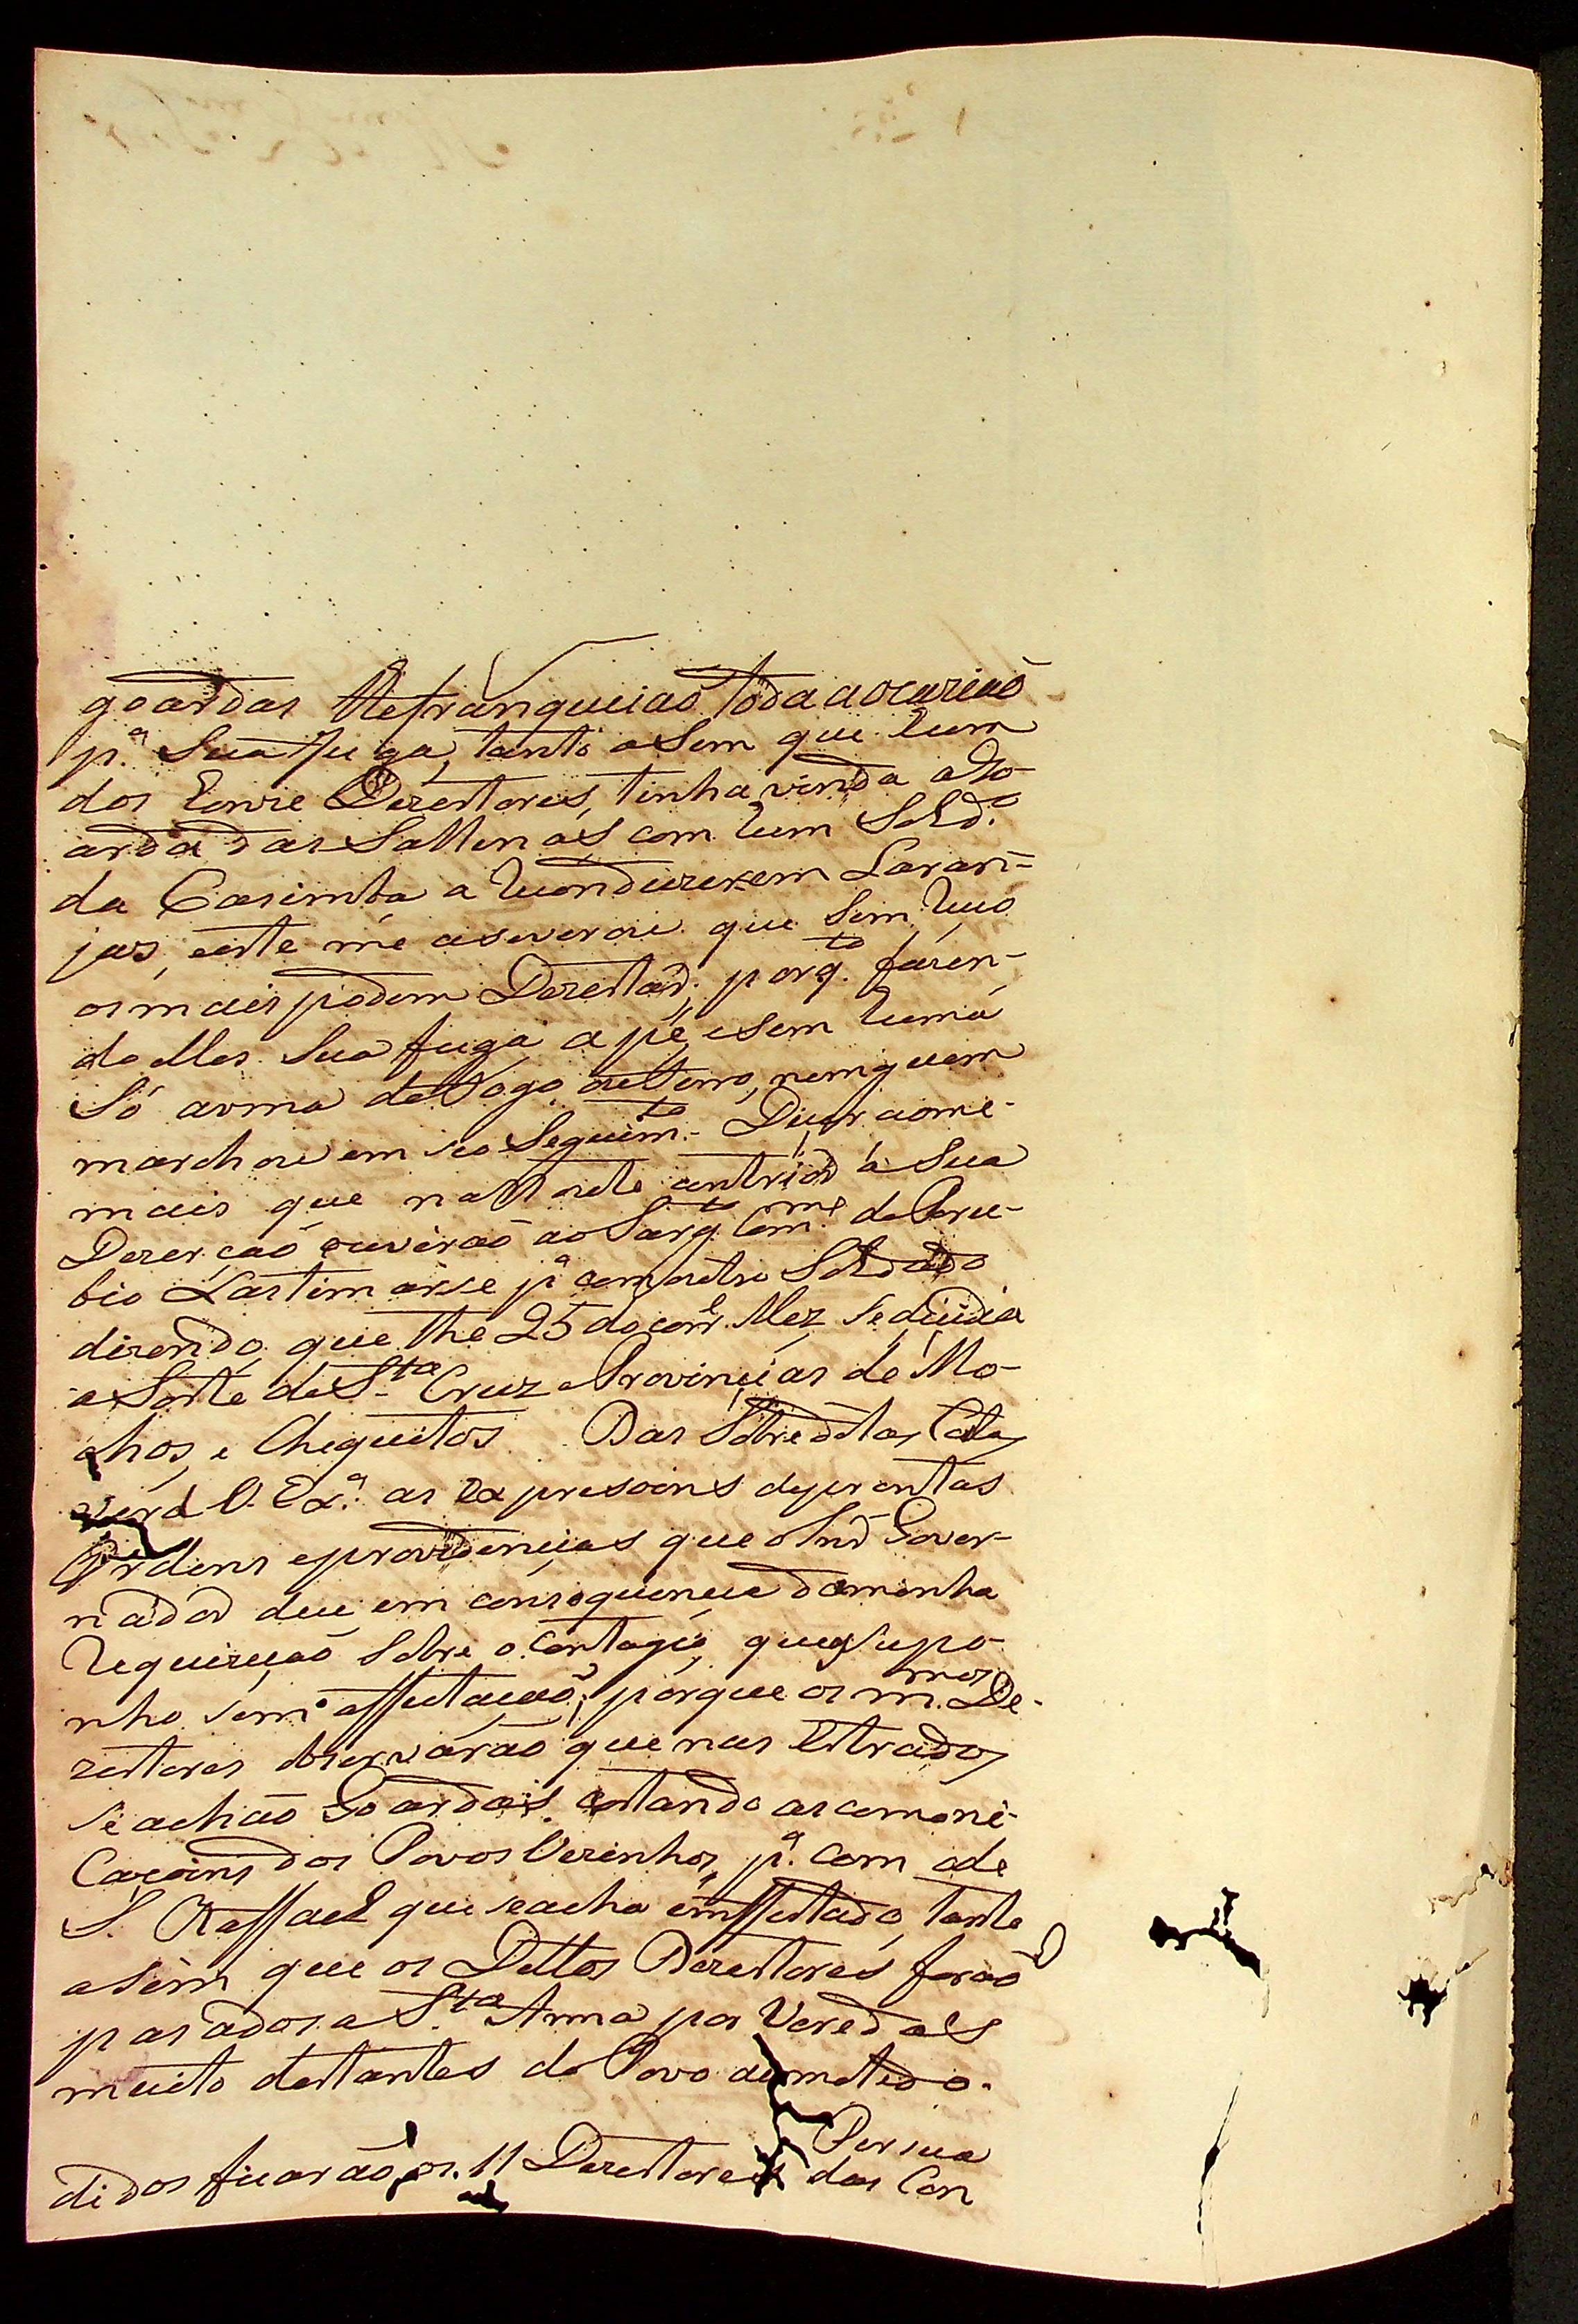 goardas lhefranqueiaõ toda a ocaziaõ
p.ª Sua fuga, tanto aSim que hum
dos honze Dezertores, tinha vindo a Go-
arda das Sallinas com hum Sold.º
da Casimba a conduzirem Laran-
jas, este me aseverou que Sem
os mais podem Dezertar, porq. fazen-
do elles Sua fuga a pé, e Sem huma
Só arma de fogo, ninguem
marchou em seo Seguim.to Diseraome-
mais que na Noute antrior à Sua
Dezerçaõ ouviraõ ao Sarg.to Com.me do
bio Lastimarse p.ª com outro Soldado
dizendo que the 25 do corr.e Mez Sedicidia
a Sorte de S.ta Cruz e Provincias de Mo-
chos, e Chequitos. Das Sobreditas Cartas
verá V. Ex.ª as expresoins
Ordens eprovidencias que o Snr Gover-
nador deu em consequencia da minha
Requiziçaõ Sobre o Contagio, que Supo-
nho Sem affectaçaõ; porque os m.mos De-
zertores observáraõ que nas Estradas
Se achaõ Goardas. as comoni-
Caçoins dos Povos Vezinhos, p.ª com ode
S. Raffael que seacha emffestado, tanto
aSim que os Dittos Dezertores foraõ
pasados a S.ta Anna por Veredas
muito destantes do Povo
Persua
didos ficaraõ os 11 Dezertores das Con